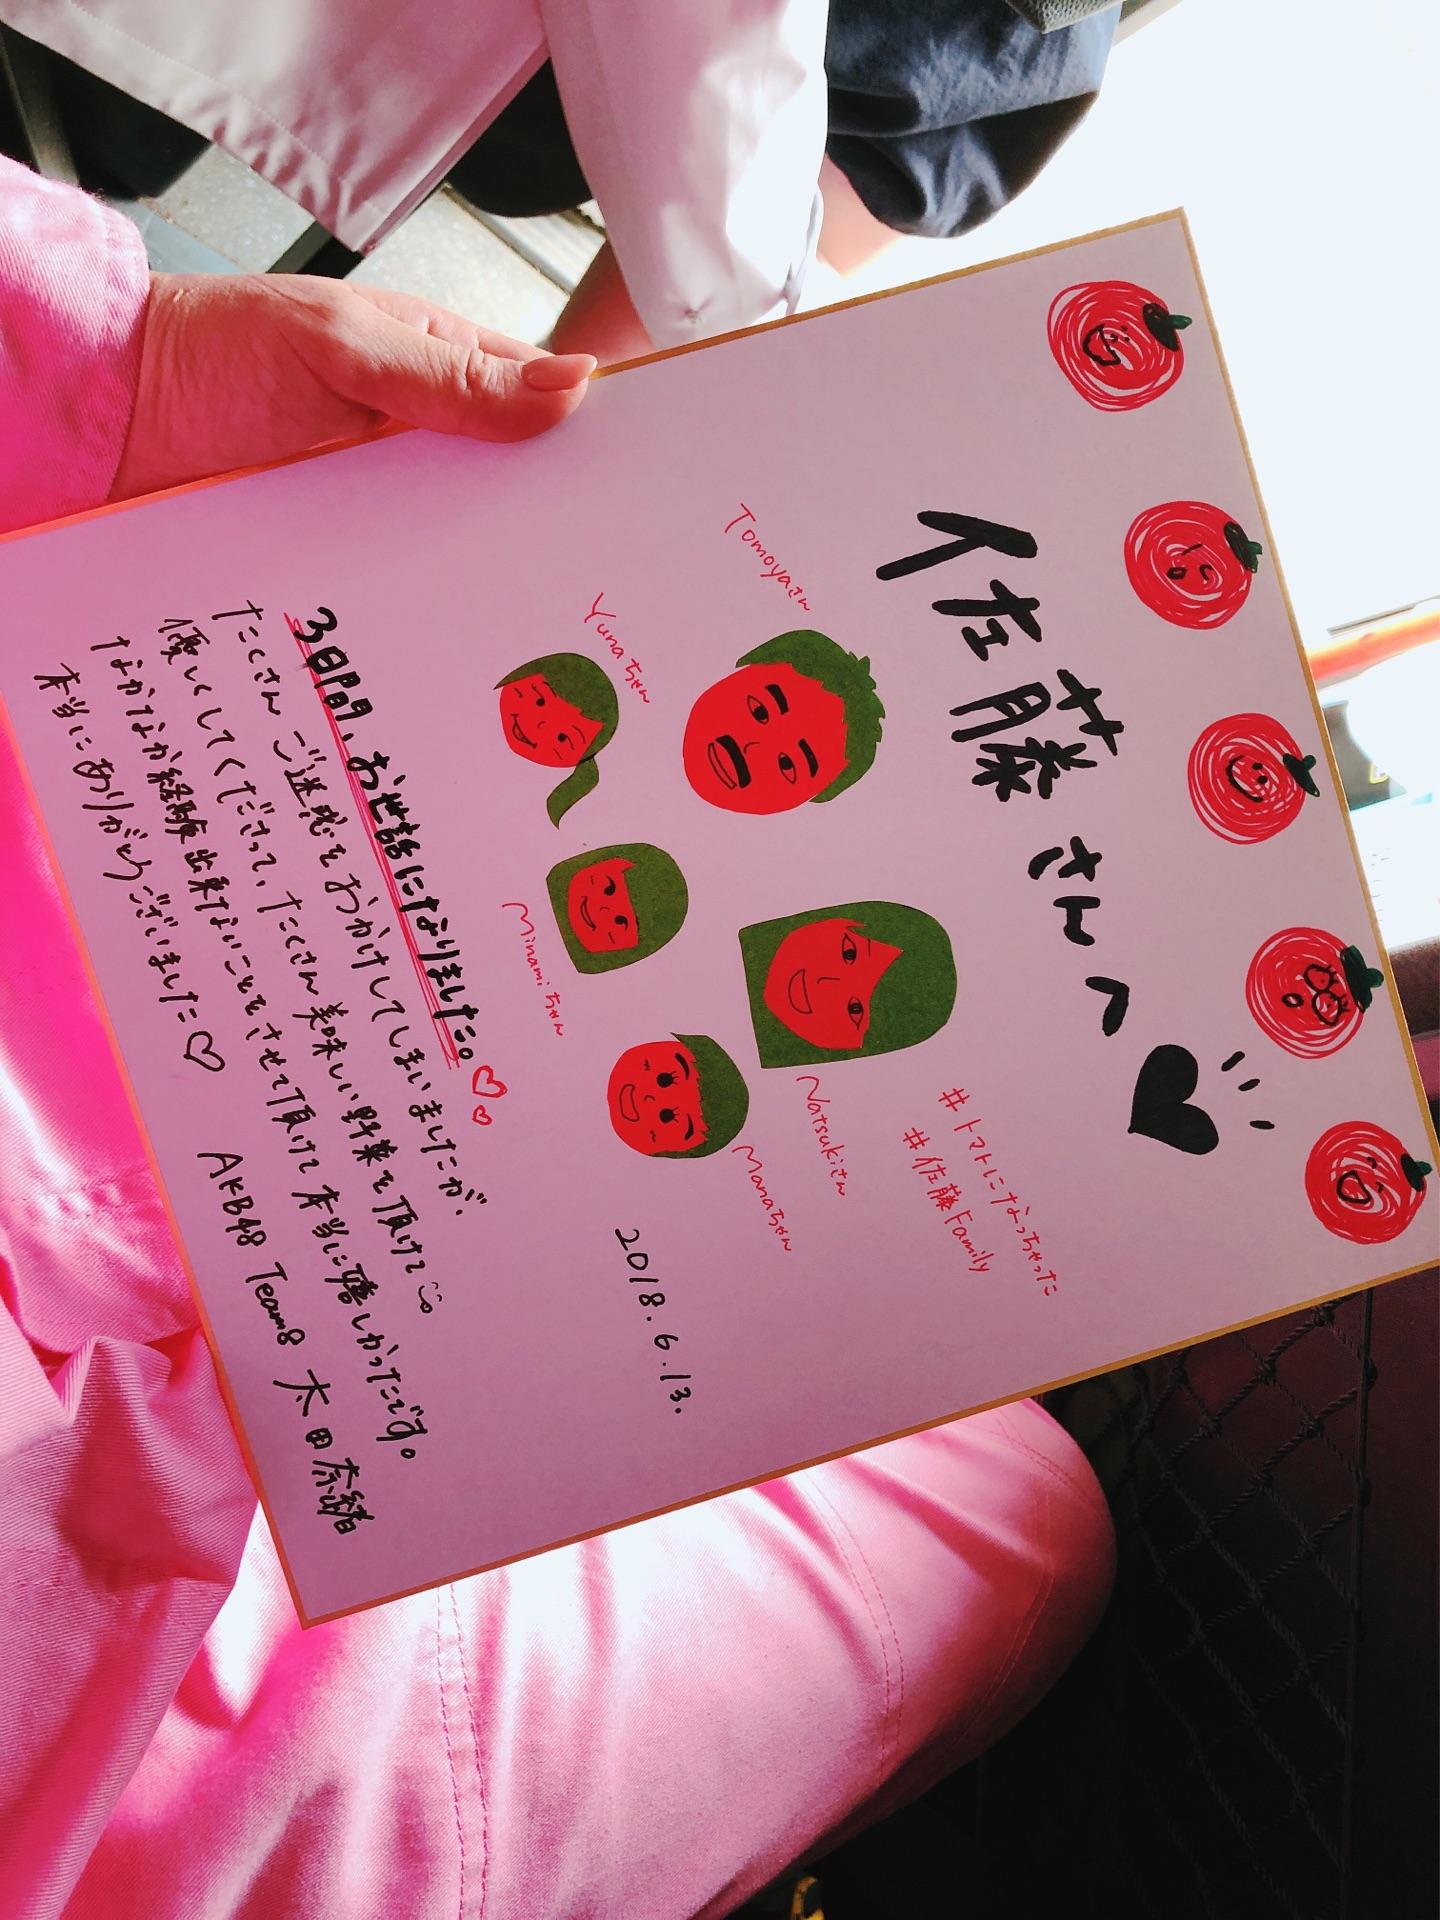 佐藤さんへ
#トマトになっちゃった
#佐藤Family
Tomoyaさん
Natsukiさん
Yunaちゃん
Minamiちゃん
Manaちゃん
2018.6.13.
3日間、お世話になりました。
たくさんご迷惑をおかけしてしまいましたが、
優しくしてくださって、たくさん美味しい野菜を頂けて
なかなか経験出来ないことをさせて頂けて本当に嬉しかったです。
本当にありがとうございました
AKB48 Team8 太田奈緒